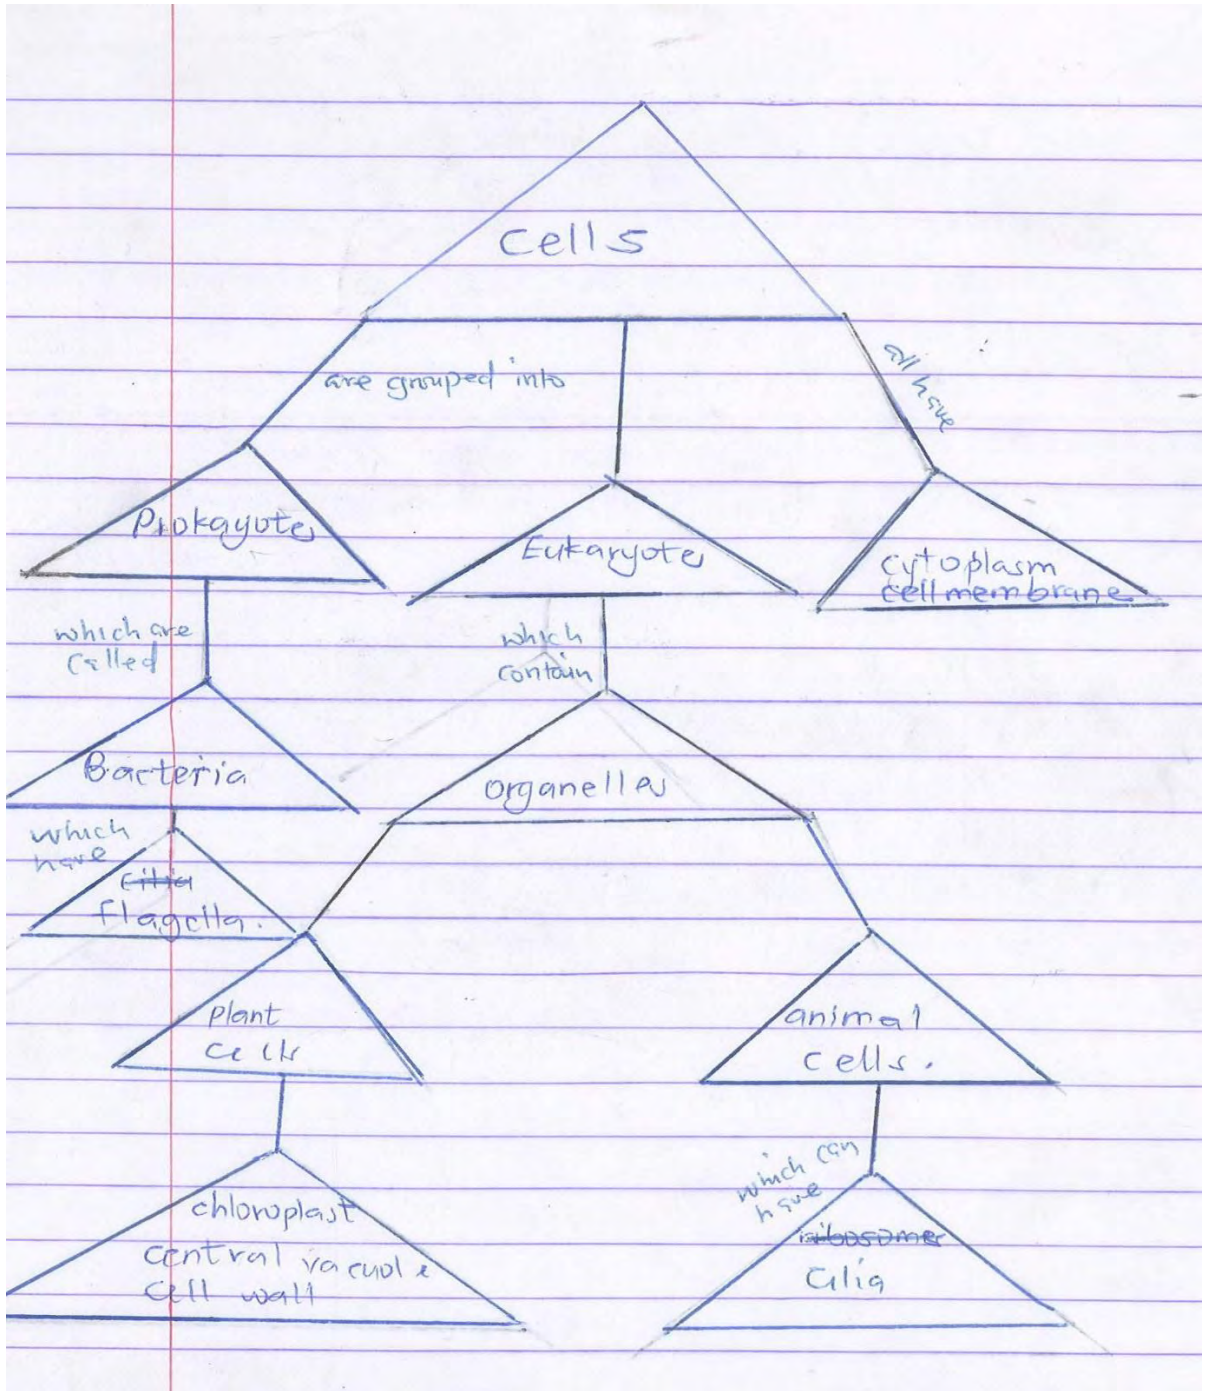 cells
are grouped into
all have
Prokayotes
Eukaryotes
cytoplasm
cell membrane
which are
called
which
contain
Bacteria
organelles
which
have
cilia
flagella.
plant
cells
animal
cells.
which can
have
chloroplast
central vacuole
cell wall
ribosomes
cilia